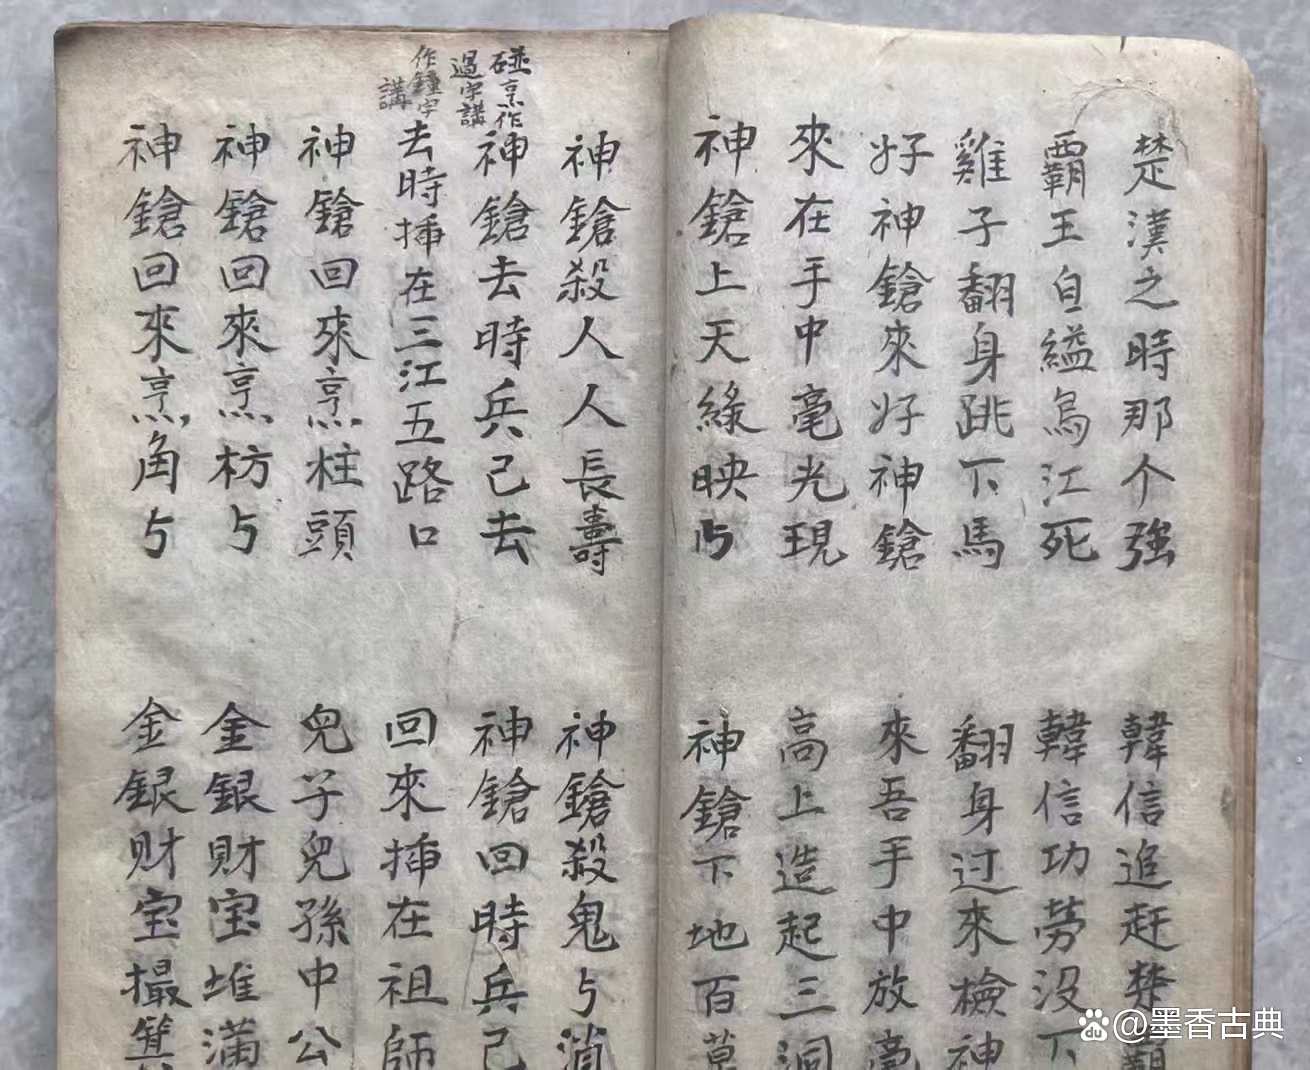 楚漢之時那个強
韓信追赶楚霸
覇王自縊烏江死
韓信功劳没下
雞子翻身跳下馬
翻身过來檢神
好神鎗來好神鎗
來吾手中放毫
來在手中毫光現
高上造起三洞
神鎗上天綠映与
神鎗下地百草
神鎗殺人人長壽
神鎗殺鬼与消
碰烹作
過字講
作鐘字
講
神鎗去時兵己去
神鎗回時兵己
去時揷在三江五路口
回來揷在祖師
神鎗回來烹柱頭
兒子兒孫中公
神鎗回來烹枋与
金銀財宝堆滿
神鎗回來烹角与
金銀财宝撮箕
Bai@墨香古典